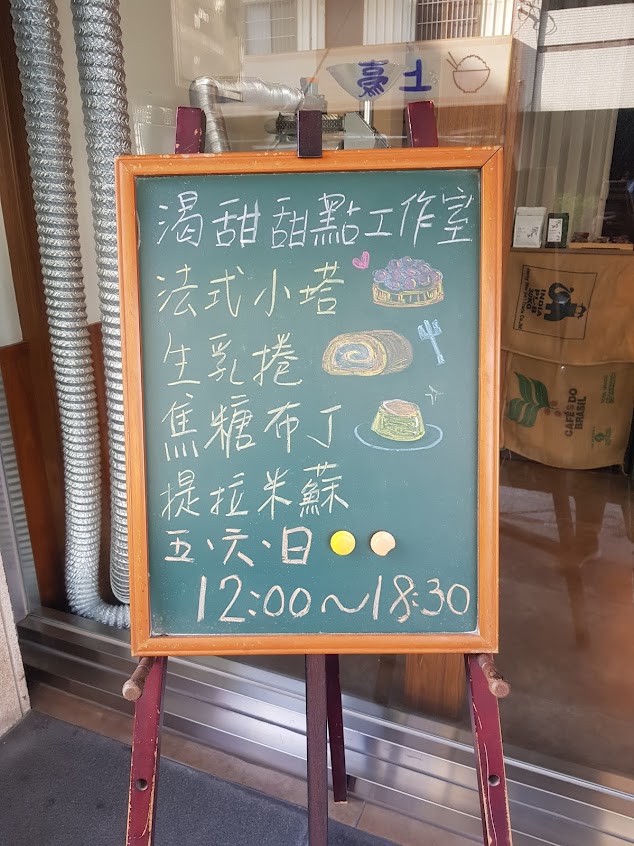 渴甜甜點工作室
法式小塔
生乳捲
焦糖布丁
提拉米蘇
五、六、日
12:00～18:30
INDIA
CAFÉS DO
BRASIL